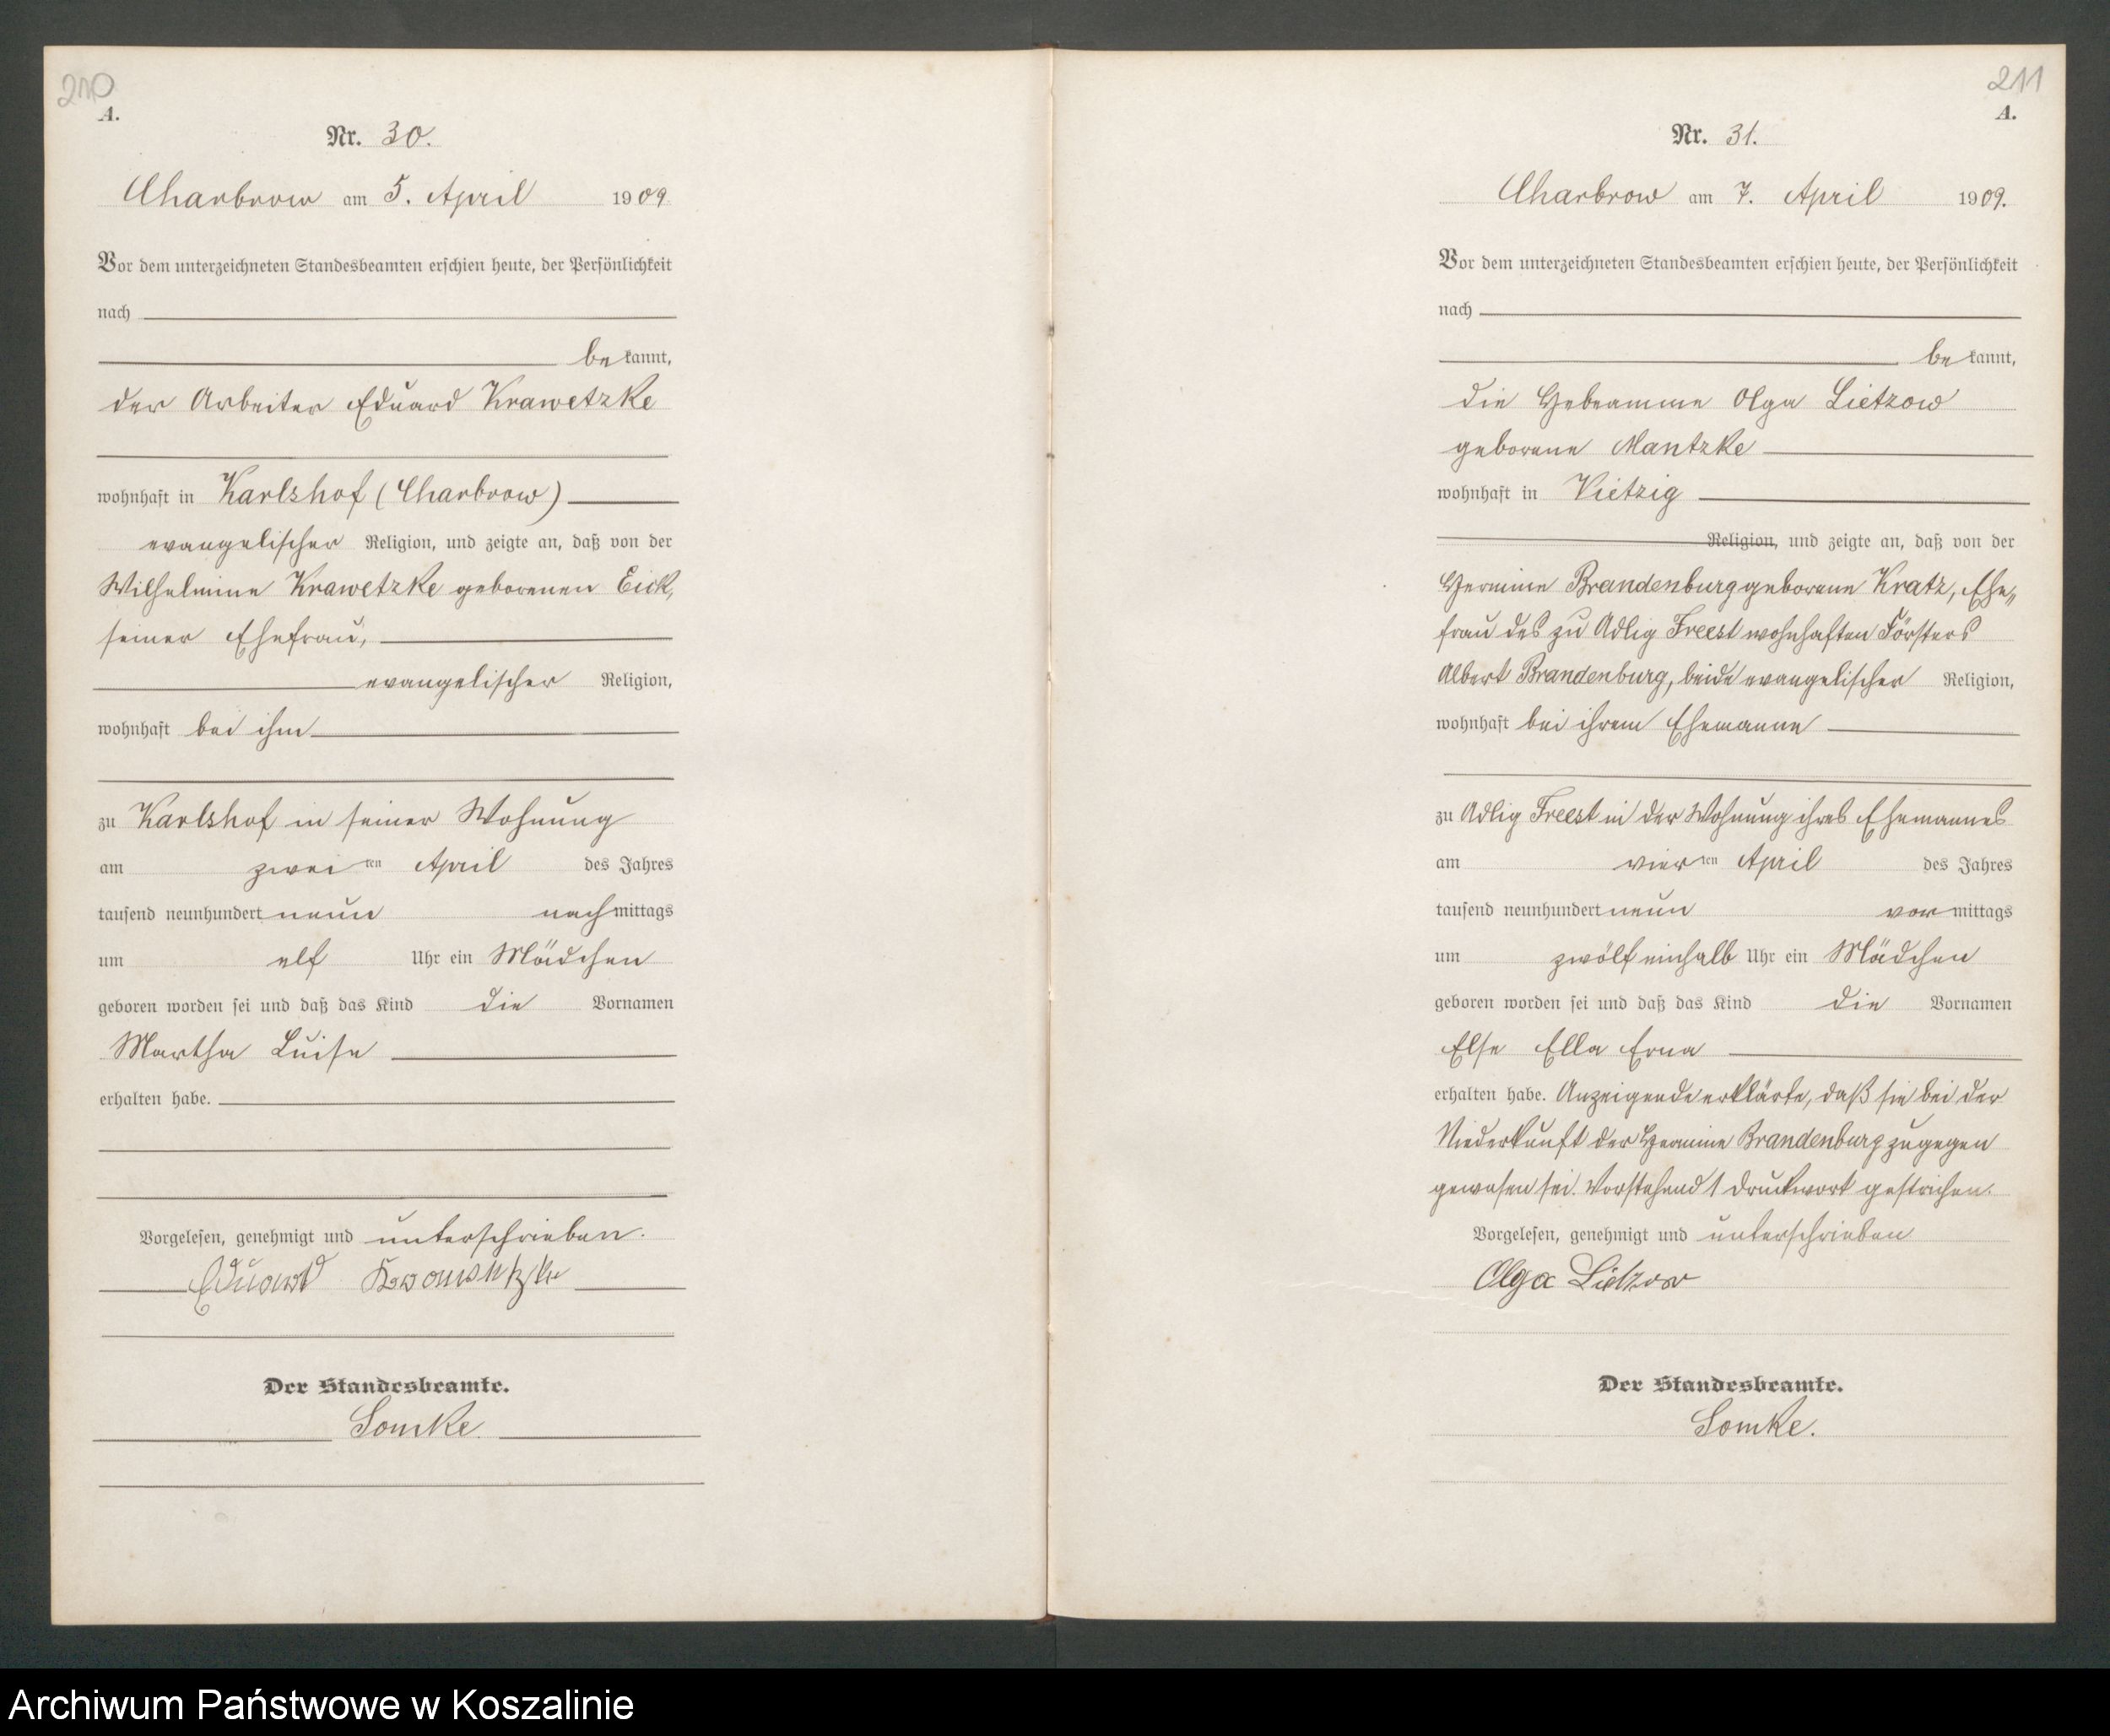 210
A.
Nr. 30.
Charbrow am 5. April 1909
Vor dem unterzeichneten Standesbeamten erschien heute, der Persönlichkeit
nach
be kannt,
der Arbeiter Eduard Krawetzke
wohnhaft in Karlshof (Charbrow)
evangelischer Religion, und zeigte an, daß von der
Wilhelmine Krawetzke geborenen Eick,
seiner Ehefrau,
evangelischer Religion,
wohnhaft bei ihm
zu Karlshof in seiner Wohnung
am zwei ten April des Jahres
tausend neunhundert neun nachmittags
um elf Uhr ein Mädchen
geboren worden sei und daß das Kind die Vornamen
Martha Luise
erhalten habe.
Vorgelesen, genehmigt und unterschrieben.
Eduard Krawetzke
Der Standesbeamte.
Somke.
211
A.
Nr. 31.
Charbrow am 7. April 1909.
Vor dem unterzeichneten Standesbeamten erschien heute, der Persönlichkeit
nach
be kannt,
die Hebeamme Olga Lietzow
geborene Mantzke
wohnhaft in Vietzig
Religion, und zeigte an, daß von der
Hermine Brandenburg geborene Kratz, Ehe„
frau des zu Adlig Freest wohnhaften Försters
Albert Brandenburg, beide evangelischer Religion,
wohnhaft bei ihrem Ehemanne
zu Adlig Freest in der Wohnung ihres Ehemannes
am vier ten April des Jahres
tausend neunhundert neun vor mittags
um zwölf einhalb Uhr ein Mädchen
geboren worden sei und daß das Kind die Vornamen
Else Ella Erna
erhalten habe. Anzeigende erklärte, daß sie bei der
Niederkunft der Hermine Brandenburg zugegen
gewesen sei. Vorstehend 1 Druckwort gestrichen.
Vorgelesen, genehmigt und unterschrieben
Olga Lietzow
Der Standesbeamte.
Somke.
Archiwum Państwowe w Koszalinie